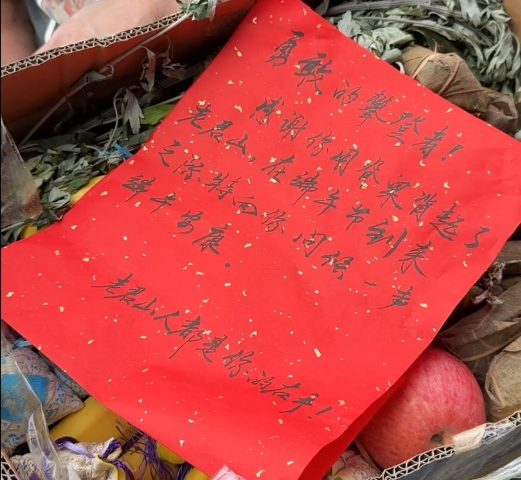 勇敢的攀登者！
感谢你用脊梁背起了
老君山，在端午节到来
之际特向你问候一声
端午安康。
老君山人都是你的左手！